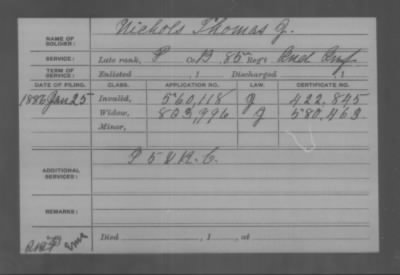 NAME OF SOLDIER: Nichols Thomas J.
SERVICE: Late rank, P Co. B, 85 Reg't Ind Inf
TERM OF SERVICE: Enlisted , 1 Discharged , 1
DATE OF FILING. CLASS. APPLICATION NO. LAW. CERTIFICATE NO.
1886 Jan 25 Invalid, 560,118 J 422,845
Widow, 803,996 J 580,463
Minor,
P 5 U N. C.
ADDITIONAL SERVICES:
REMARKS:
Died , 1 , at